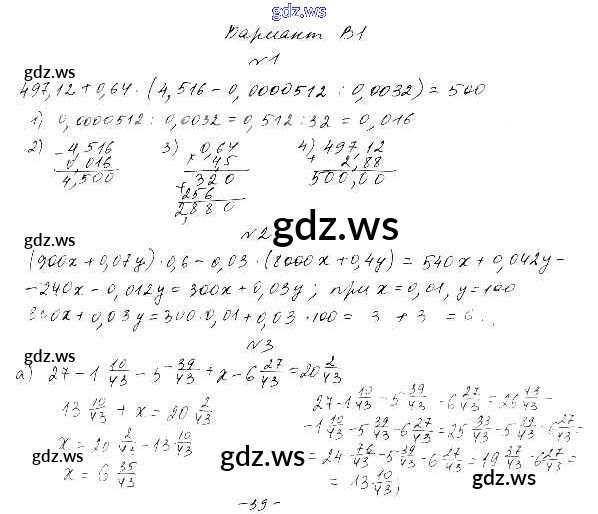 gdz.ws
Вариант В1
gdz.ws
№1
497,12 + 0,64 · (4,516 - 0,0000512 : 0,0032) = 500
1) 0,0000512 : 0,0032 = 0,512 : 32 = 0,016
2) - 4,516 3) 0,64 4) 497,12
0,016 × 4,5 + 2,88
4,500 320 500,00
+ 256
2,880
gdz.ws
№2
gdz.ws
(900x + 0,07y) · 0,6 - 0,03 · (8000x + 0,4y) = 540x + 0,042y -
- 240x - 0,012y = 300x + 0,03y ; при x = 0,01, y = 100
300x + 0,03y = 300 · 0,01 + 0,03 · 100 = 3 + 3 = 6.
№3
gdz.ws
а) 27 - 1 10/43 - 5 39/43 + x - 6 27/43 = 20 2/43
13 10/43 + x = 20 2/43
x = 20 2/43 - 13 10/43
x = 6 35/43
27 - 1 10/43 - 5 39/43 - 6 27/43 = 26 43/43 -
- 1 10/43 - 5 39/43 - 6 27/43 = 25 33/43 - 5 39/43 - 6 27/43 =
= 24 76/43 - 5 39/43 - 6 27/43 = 19 37/43 - 6 27/43 =
= 13 10/43;
gdz.ws
gdz.ws
gdz.ws
gdz.ws
- 39 -